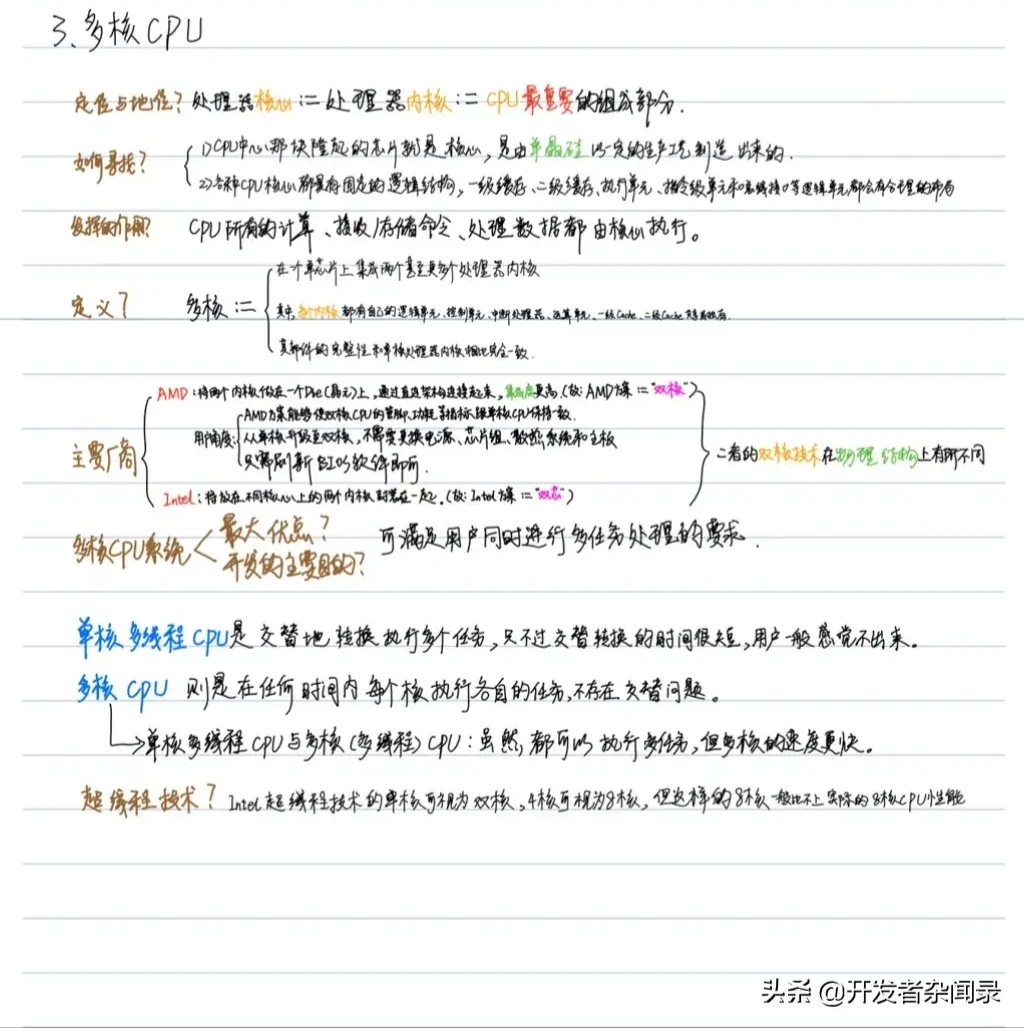 3、多核CPU
定位与地位? 处理器核心 := 处理器内核 := CPU最重要的组成部分.
如何寻找? 1)CPU中心那块隆起的芯片就是核心,是由单晶硅以一定的生产工艺制造出来的.
2)各种CPU核心都具有固定的逻辑结构,一级缓存、二级缓存、执行单元、指令级单元和总线接口等逻辑单元都会有合理的布局
发挥的作用? CPU所有的计算、接收/存储命令、处理数据都由核心执行。
在个单芯片上集成两个甚至更多个处理器内核
定义? 多核 := 其中,每个内核都有自己的逻辑单元、控制单元、中断处理器、运算单元、一级Cache、二级Cache
其部件的完整性和单核处理器内核相比完全一致.
AMD:将两个内核做在一个Die(晶元)上,通过直连架构连接起来,集成度更高.(故:AMD方案 := "双核")
AMD方案能够使双核CPU的管脚、功耗等指标跟单核CPU保持一致.
用户角度:从单核升级至双核,不需要更换电源、芯片组、散热系统和主板
只需刷新BIOS软件即可.
主要厂商 二者的双核技术在物理结构上有所不同
Intel:将放在不同核心上的两个内核封装在一起.(故:Intel方案 := "双芯")
多核CPU系统 最大优点? 可满足用户同时进行多任务处理的要求.
开发的主要目的?
单核多线程CPU是交替地转换执行多个任务,只不过交替转换的时间很短,用户一般感觉不出来。
多核CPU 则是在任何时间内每个核执行各自的任务,不存在交替问题。
单核多线程CPU与多核(多线程)CPU:虽然,都可以执行多任务,但多核的速度更快。
超线程技术? Intel超线程技术的单核可视为双核,4核可视为8核,但这样的8核一般比不上实际的8核CPU性能
头条 @开发者杂闻录